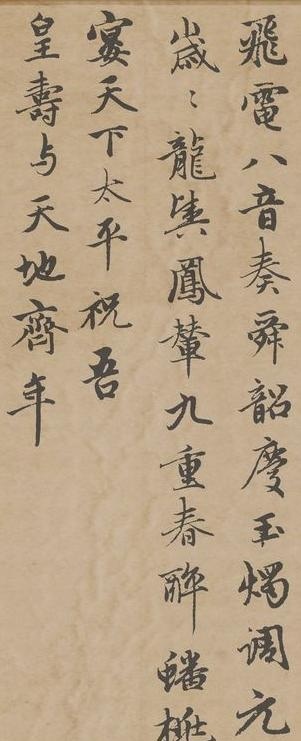 飛電八音奏舜韶慶玉燭調元
歲〻龍輿鳳輦九重春醉蟠桃
宴天下太平祝吾
皇壽与天地齊年